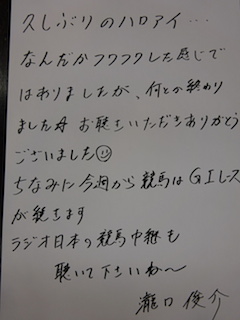 久しぶりのハロアイ…
なんだかフワフワした感じで
はありましたが、何とか終わり
ました お聴きいただきありがとう
ございました
ちなみに今週から競馬はGIレース
が続きます
ラジオ日本の競馬中継も
聴いて下さいね〜
瀧口 俊介